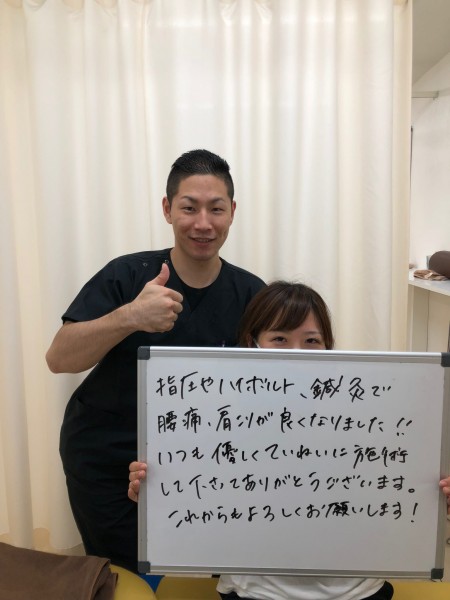 指圧やハイボルト、鍼灸で
腰痛、肩こりが良くなりました!!
いつも優しくていねいに施術
して下さってありがとうございます。
これからもよろしくお願いします!